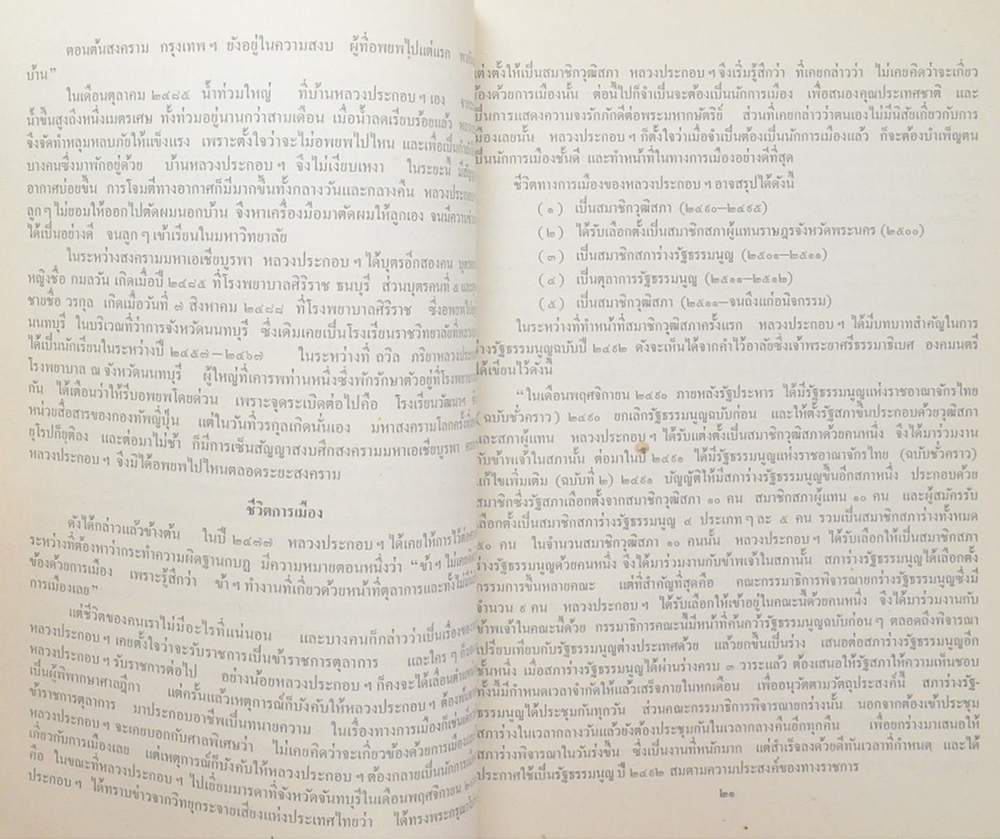 ตอนต้นสงคราม กรุงเทพ ฯ ยังอยู่ในความสงบ ผู้ที่อพยพไปแต่แรก
บ้าน”
ในเดือนตุลาคม ๒๔๘๕ น้ำท่วมใหญ่ ที่บ้านหลวงประกอบ ฯ เอง
น้ำขึ้นสูงถึงหนึ่งเมตรเศษ ทั้งท่วมอยู่นานกว่าสามเดือน เมื่อน้ำลดเรียบร้อยแล้ว
จึงจัดทำหลุมหลบภัยให้แข็งแรง เพราะตั้งใจว่าจะไม่อพยพไปไหน และเพื่อเป็น
บางคนซึ่งมาพักอยู่ด้วย บ้านหลวงประกอบ ฯ จึงไม่เงียบเหงา ในระยะนี้
อากาศบ่อยขึ้น การโจมตีทางอากาศก็มีมากขึ้นทั้งกลางวันและกลางคืน หลวงประกอบ
ลูก ๆ ไม่ยอมให้ออกไปตัดผมนอกบ้าน จึงหาเครื่องมือมาตัดผมให้ลูกเอง จนมีความ
ได้เป็นอย่างดี จนลูก ๆ เข้าเรียนในมหาวิทยาลัย
ในระหว่างสงครามมหาเอเชียบูรพา หลวงประกอบ ฯ ได้บุตรอีกสองคน
หญิงชื่อ กมลวัน เกิดเมื่อปี ๒๔๘๕ ที่โรงพยาบาลศิริราช ธนบุรี ส่วนบุตรคนที่ ๕
ชายชื่อ วรกุล เกิดเมื่อวันที่ ๗ สิงหาคม ๒๔๘๘ ที่โรงพยาบาลศิริราช ซึ่งอพยพไป
นนทบุรี ในบริเวณที่ว่าการจังหวัดนนทบุรี ซึ่งเดิมเคยเป็นโรงเรียนราชวิทยาลัยที่หลวง
ได้เป็นนักเรียนในระหว่างปี ๒๔๕๗—๒๔๖๗ ในระหว่างที่ ถวิล ภริยาหลวงประกอบ
โรงพยาบาล ณ จังหวัดนนทบุรี ผู้ใหญ่ที่เคารพท่านหนึ่งซึ่งพักรักษาตัวอยู่ที่โรงพยาบาล
กัน ได้เตือนว่าให้รีบอพยพโดยด่วน เพราะจุดระเบิดต่อไปคือ โรงเรียนวัฒนา ฯ
หน่วยสื่อสารของกองทัพญี่ปุ่น แต่ในวันที่วรกุลเกิดนั้นเอง มหาสงครามโลกครั้งที่
ยุโรปก็ยุติลง และต่อมาไม่ช้า ก็มีการเซ็นสัญญาสงบศึกสงครามมหาเอเชียบูรพา
หลวงประกอบ ฯ จึงมิได้อพยพไปไหนตลอดระยะสงคราม
ชีวิตการเมือง
ดังได้กล่าวแล้วข้างต้น ในปี ๒๔๗๗ หลวงประกอบ ฯ ได้เคยให้การไว้
ระหว่างที่ต้องหาว่ากระทำความผิดฐานกบฏ มีความหมายตอนหนึ่งว่า “ข้า ฯ ไม่เคย
ข้องด้วยการเมือง เพราะรู้สึกว่า ข้า ฯ ทำงานที่เกี่ยวด้วยหน้าที่ตุลาการและทั้งไม่
การเมืองเลย”
แต่ชีวิตของคนเราไม่มีอะไรที่แน่นอน และบางคนก็กล่าวว่าเป็นเรื่องของ
หลวงประกอบ ฯ เคยตั้งใจว่าจะรับราชการเป็นข้าราชการตุลาการ และใคร ๆ ก็
หลวงประกอบ ฯ รับราชการต่อไป อย่างน้อยหลวงประกอบ ฯ ก็คงจะได้เลื่อนตำแหน่ง
เป็นผู้พิพากษาศาลฎีกา แต่ครั้นแล้วเหตุการณ์ก็บังคับให้หลวงประกอบ ฯ ต้อง
ข้าราชการตุลาการ มาประกอบอาชีพเป็นทนายความ ในเรื่องทางการเมืองก็เช่น
หลวงประกอบ ฯ จะเคยบอกกับศาลพิเศษว่า ไม่เคยคิดว่าจะเกี่ยวข้องด้วยการเมือง
เกี่ยวกับการเมืองเลย แต่เหตุการณ์ก็บังคับให้หลวงประกอบ ฯ ต้องกลายเป็นนักการเมือง
คือ ในขณะที่หลวงประกอบ ฯ ไปเยี่ยมมารดาที่จังหวัดจันทบุรีในเดือนพฤศจิกายน
ประกอบ ฯ ได้ทราบข่าวจากวิทยุกระจายเสียงแห่งประเทศไทยว่า ได้ทรงพระกรุณา
แต่งตั้งให้เป็นสมาชิกวุฒิสภา หลวงประกอบ ฯ จึงเริ่มรู้สึกว่า ที่เคยกล่าวว่า ไม่เคยคิดว่าจะเกี่ยว
ข้องด้วยการเมืองนั้น ต่อนี้ไปก็จำเป็นจะต้องเป็นนักการเมือง เพื่อสนองคุณประเทศชาติ และ
เป็นการแสดงความจงรักภักดีต่อพระมหากษัตริย์ ส่วนที่เคยกล่าวว่าตนเองไม่มีนิสัยเกี่ยวกับการ
เมืองเลยนั้น หลวงประกอบ ฯ ก็ตั้งใจว่าเมื่อจำเป็นต้องเป็นนักการเมืองแล้ว ก็จะต้องบำเพ็ญตน
เป็นนักการเมืองชั้นดี และทำหน้าที่ในทางการเมืองอย่างดีที่สุด
ชีวิตทางการเมืองของหลวงประกอบ ฯ อาจสรุปได้ดังนี้
(๑) เป็นสมาชิกวุฒิสภา (๒๔๙๐—๒๔๙๕)
(๒) ได้รับเลือกตั้งเป็นสมาชิกสภาผู้แทนราษฎรจังหวัดพระนคร (๒๕๐๐)
(๓) เป็นสมาชิกสภาร่างรัฐธรรมนูญ (๒๕๐๑—๒๕๑๑)
(๔) เป็นตุลาการรัฐธรรมนูญ (๒๕๑๑—๒๕๑๒)
(๕) เป็นสมาชิกวุฒิสภา (๒๕๑๑—จนถึงแก่อนิจกรรม)
ในระหว่างที่ทำหน้าที่สมาชิกวุฒิสภาครั้งแรก หลวงประกอบ ฯ ได้มีบทบาทสำคัญในการ
ร่างรัฐธรรมนูญฉบับปี ๒๔๙๒ ดังจะเห็นได้จากคำไว้อาลัยซึ่งเจ้าพระยาศรีธรรมาธิเบศ องคมนตรี
ได้เขียนไว้ดังนี้
“ในเดือนพฤศจิกายน ๒๔๙๐ ภายหลังรัฐประหาร ได้มีรัฐธรรมนูญแห่งราชอาณาจักรไทย
(ฉบับชั่วคราว) ๒๔๙๐ ยกเลิกรัฐธรรมนูญฉบับก่อน และให้ตั้งรัฐสภาขึ้นประกอบด้วยวุฒิสภา
และสภาผู้แทน หลวงประกอบ ฯ ได้รับแต่งตั้งเป็นสมาชิกวุฒิสภาด้วยคนหนึ่ง จึงได้มาร่วมงาน
กับข้าพเจ้าในสภานั้น ต่อมาในปี ๒๔๙๑ ได้มีรัฐธรรมนูญแห่งราชอาณาจักรไทย (ฉบับชั่วคราว)
แก้ไขเพิ่มเติม (ฉบับที่ ๒) ๒๔๙๑ บัญญัติให้มีสภาร่างรัฐธรรมนูญขึ้นอีกสภาหนึ่ง ประกอบด้วย
สมาชิกซึ่งรัฐสภาเลือกตั้งจากสมาชิกวุฒิสภา ๑๐ คน สมาชิกสภาผู้แทน ๑๐ คน และผู้สมัครรับ
เลือกตั้งเป็นสมาชิกสภาร่างรัฐธรรมนูญ ๔ ประเภท ๆ ละ ๕ คน รวมเป็นสมาชิกสภาร่างทั้งหมด
๔๐ คน ในจำนวนสมาชิกวุฒิสภา ๑๐ คนนั้น หลวงประกอบ ฯ ได้รับเลือกให้เป็นสมาชิกสภา
ร่างรัฐธรรมนูญด้วยคนหนึ่ง จึงได้มาร่วมงานกับข้าพเจ้าในสภานั้น สภาร่างรัฐธรรมนูญได้เลือกตั้ง
กรรมการขึ้นหลายคณะ แต่ที่สำคัญที่สุดคือ คณะกรรมาธิการพิจารณายกร่างรัฐธรรมนูญซึ่งมี
จำนวน ๙ คน หลวงประกอบ ฯ ได้รับเลือกให้เข้าอยู่ในคณะนี้ด้วยคนหนึ่ง จึงได้มาร่วมงานกับ
ข้าพเจ้าในคณะนี้ด้วย กรรมาธิการคณะนี้มีหน้าที่ค้นคว้ารัฐธรรมนูญฉบับก่อน ๆ ตลอดถึงพิจารณา
เปรียบเทียบกับรัฐธรรมนูญต่างประเทศด้วย แล้วยกขึ้นเป็นร่าง เสนอต่อสภาร่างรัฐธรรมนูญอีก
ชั้นหนึ่ง เมื่อสภาร่างรัฐธรรมนูญได้ผ่านร่างครบ ๓ วาระแล้ว ต้องเสนอให้รัฐสภาให้ความเห็นชอบ
ทั้งนี้มีกำหนดเวลาจำกัดให้แล้วเสร็จภายในหกเดือน เพื่ออนุวัตตามวัตถุประสงค์นี้ สภาร่างรัฐ-
ธรรมนูญได้ประชุมกันทุกวัน ส่วนคณะกรรมาธิการพิจารณายกร่างนั้น นอกจากต้องเข้าประชุม
สภาร่างในเวลากลางวันแล้วยังต้องประชุมกันในเวลากลางคืนอีกทุกคืน เพื่อยกร่างมาเสนอให้
สภาร่างพิจารณาในวันรุ่งขึ้น ซึ่งเป็นงานที่หนักมาก แต่สำเร็จลงด้วยดีทันเวลาที่กำหนด และได้
ประกาศใช้เป็นรัฐธรรมนูญ ปี ๒๔๙๒ สมตามความประสงค์ของทางราชการ
๒๑